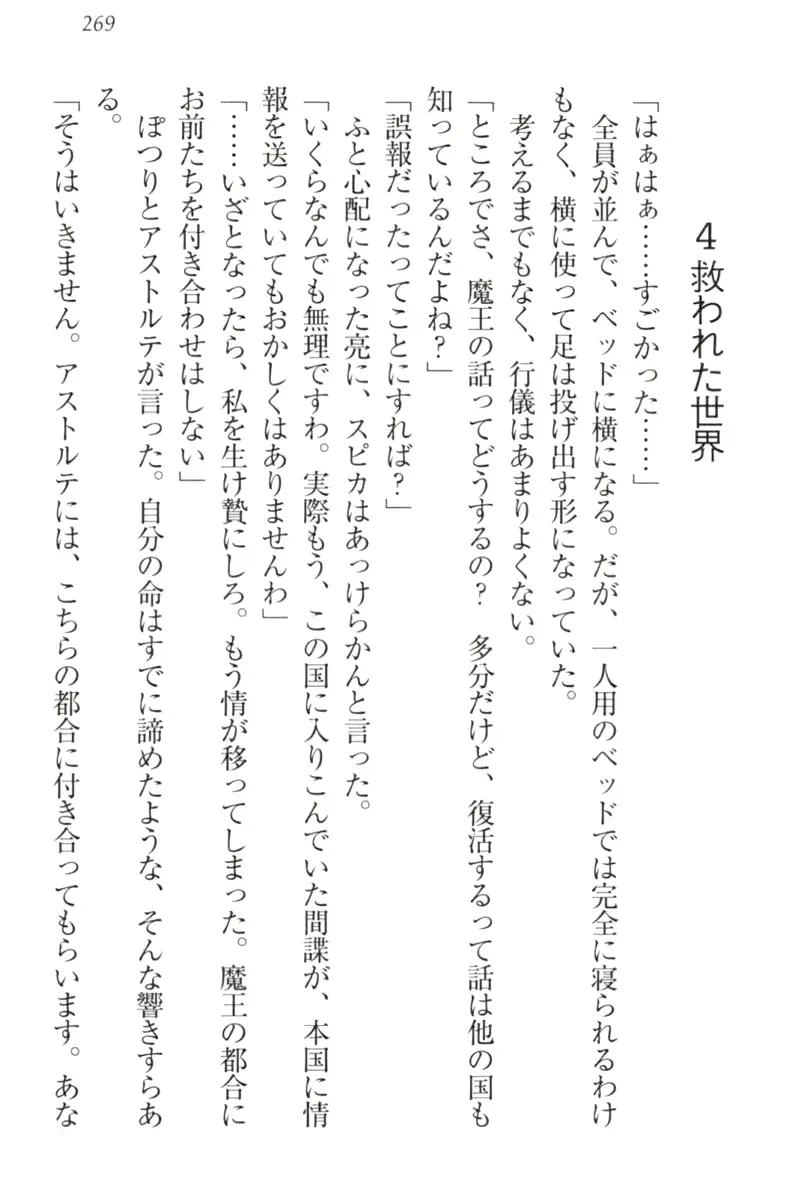 269
4 救われた世界
「はぁはぁ……すごかった……」
　全員が並んで、ベッドに横になる。だが、一人用のベッドでは完全に寝られるわけ
もなく、横に使って足は投げ出す形になっていた。
　考えるまでもなく、行儀はあまりよくない。
「ところでさ、魔王の話ってどうするの？　多分だけど、復活するって話は他の国も
知っているんだよね？」
「誤報だったってことにすれば？」
　ふと心配になった亮に、スピカはあっけらかんと言った。
「いくらなんでも無理ですわ。実際もう、この国に入りこんでいた間諜が、本国に情
報を送っていてもおかしくはありませんわ」
「……いざとなったら、私を生け贄にしろ。もう情が移ってしまった。魔王の都合に
お前たちを付き合わせはしない」
　ぽつりとアストルテが言った。自分の命はすでに諦めたような、そんな響きすらあ
る。
「そうはいきません。アストルテには、こちらの都合に付き合ってもらいます。あな